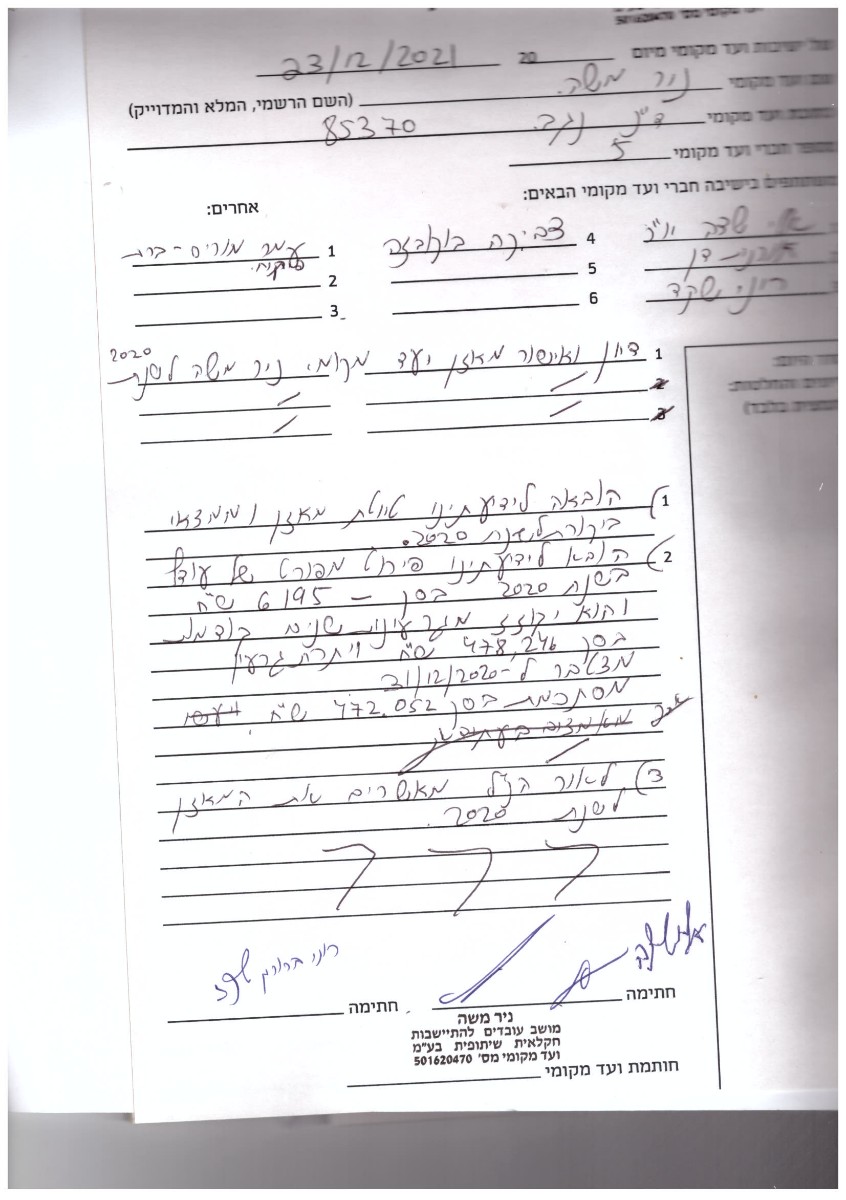 501620470
ועד מקומי מיום 20 23/12/2021
ועד מקומי ניר משה. (השם הרשמי, המלא והמדוייק)
ועד מקומי ד"נ נגב. 85370
מספר חברי ועד מקומי 5
משתתפים בישיבה חברי ועד מקומי הבאים:
אחרים:
אלי שדה יו"ר
4 צביקה
1 עמר מוריס - ברית
פיקוח
דן
5
2
רוני שקד
6
3
1 דיון ואישור מאזן ועד מקומי ניר משה לשנת 2020
2
3
1) הובאה לידיעתינו טיוטת מאזן וממצאי
ביקורת לשנת 2020.
2) הובא לידיעתינו פירוט מפורט של עודף
בשנת 2020 בסך – 6195 ש"ח
והוא יקוזז מגרעינות שנים קודמת
בסך 478,246 ש"ח ויתרת גרעון
מצטבר ל-31/12/2020
מסתכמת בסך 472.052 ש"ח.
3) לאור הנ"ל מאשרים את המאזן
לשנת 2020.
חתימה
חתימה
ניר משה
מושב עובדים להתיישבות
חקלאית שיתופית בע"מ
ועד מקומי מס' 501620470
חותמת ועד מקומי